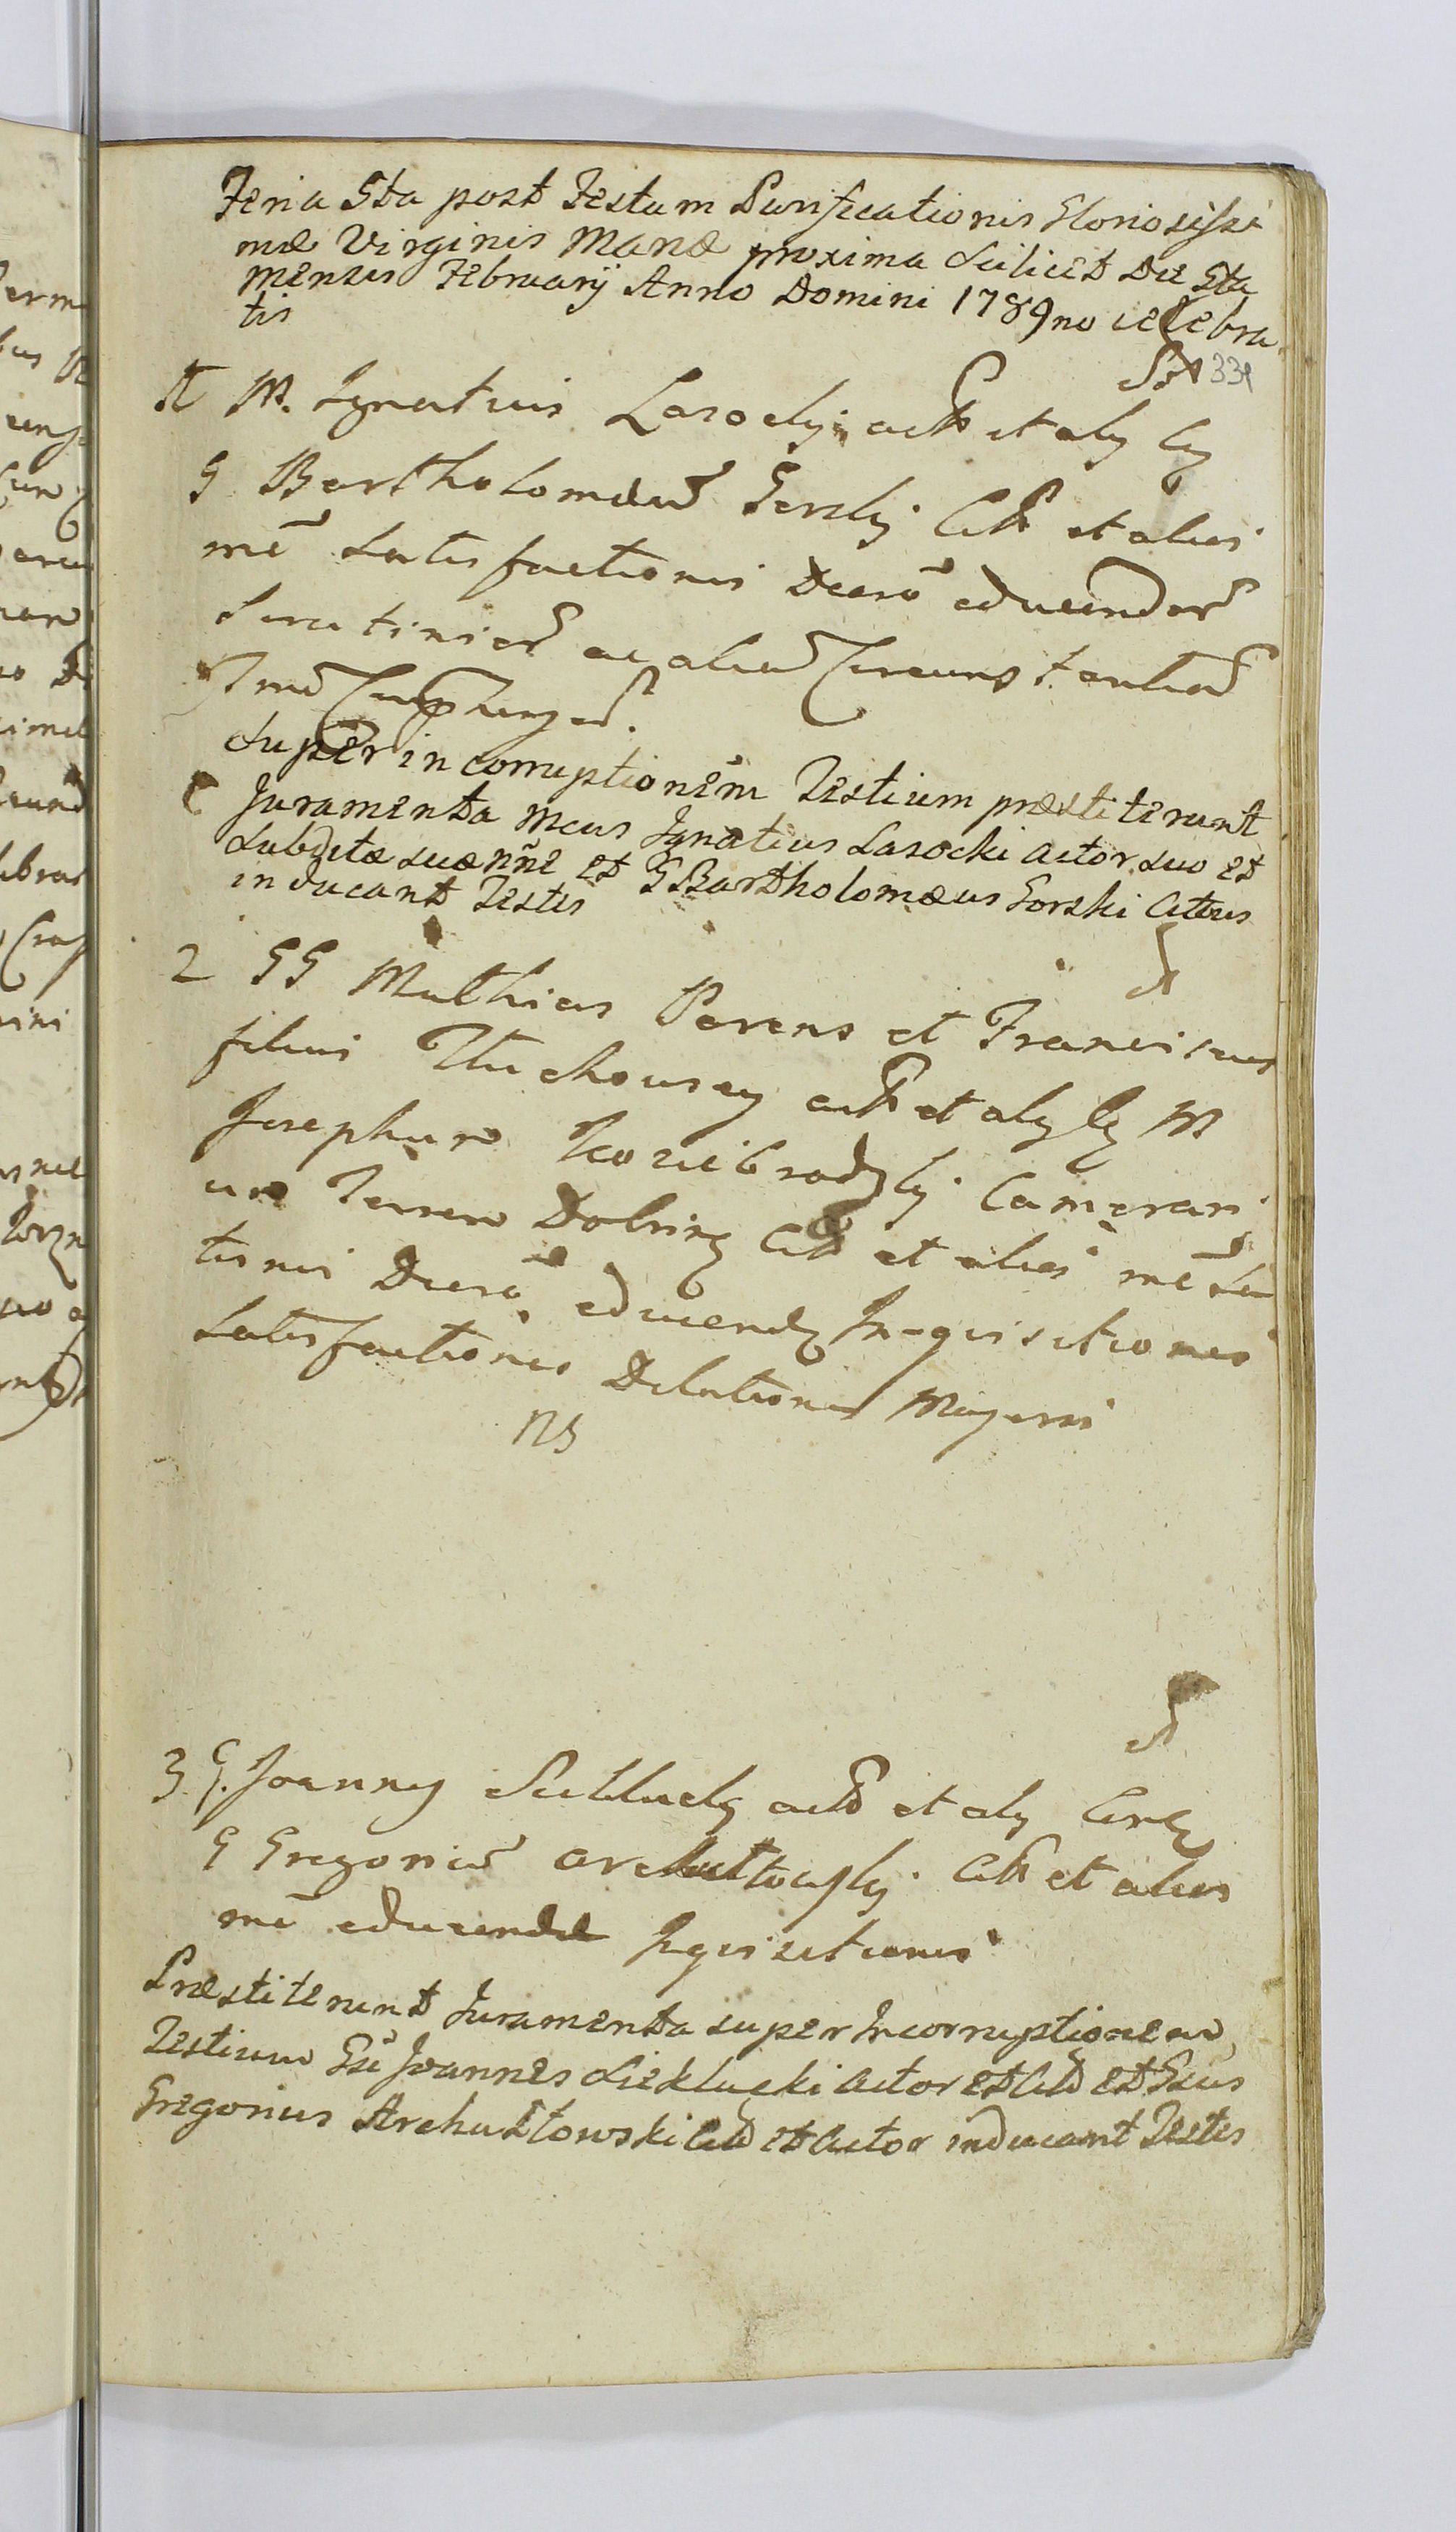 Feria 5ta post Festum Purificationis Gloriosissi
mæ Virginis Mariæ proxima scilicet Die 5ta
mensis Februarij Anno Domini 1789no celebra
tis
331
M. Ignatius Lasocky act et aly
G Bartholomæū Gorsky Citt et alios
mē satisfactionis Decrō educendor
Scrutinior ac aliar Circumstantiar
Super incorruptionēm Testium præstiterunt
Juramenta Mcus Ignatius Lasocki Actor suo et
subditæ suæ nñe et G Bartholomæus Gorski Cittus
inducant Testes
2 GG Mathias Parens et Franciscus
filius act et aly M
Josephum Koziebrodzky Camerari
um Terræ Dobrinē Citt et alios mē
tionis Decrō educendæ Inquisitionis
satisfactionis Delationis
NS
3 G. Joannes act et aly
G Gregoriū Archutowsky Citt et alios
mē educendæ Inquisitionis
Præstiterunt Juramenta super Incorruptionem
Testium Gsū Joannes Sieklucki Actor et Citt et Gsus
Gregorius Archutowski Citt et Actor inducant Testes